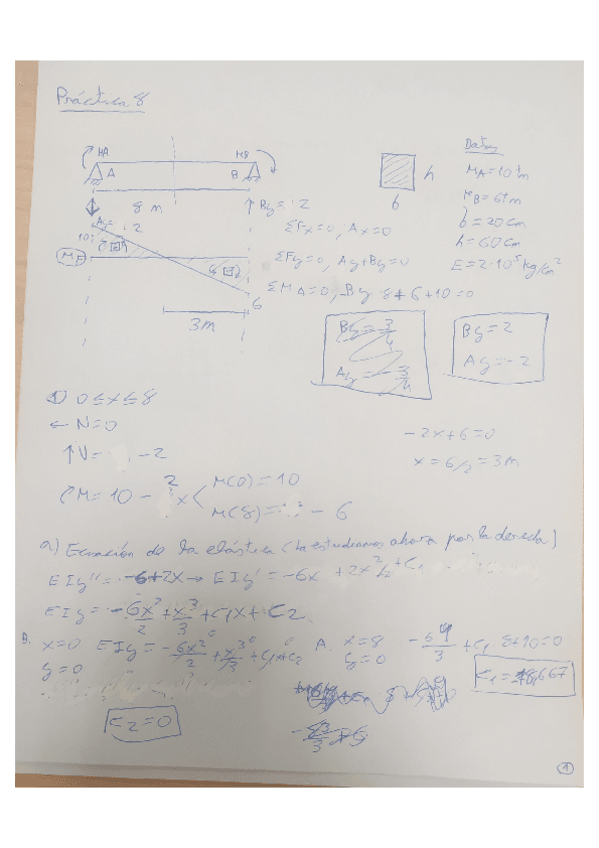 Práctica 8
Datos
MA MB
A B
h
b
MA=10 tm
MB=6 tm
b=20cm
h=60cm
E=2·10⁵ kg/cm²
8 m
By=2
Ay=2
10
MF
6
3m
ΣFx=0, Ax=0
ΣFy=0, Ay+By=0
ΣMA=0, By·8+6+10=0
By=3/4
Ay=-3/4
By=2
Ay=-2
1) 0≤x≤8
← N=0
↑V= -2
M=10-2x
M(0)=10
M(8)= -6
-2x+6=0
x=6/2=3m
a) Ecuación de la elástica (La estudiamos ahora por la derecha)
EIy''=-6+2x → EIy'=-6x+2x²/2+C1
EIy=-6x²/2+x³/3+C1x+C2
B. x=0 EIy=-6x²/2+x³/3+C1x+C2
y=0
C2=0
A. x=8
y=0
+C1 8+10=0
①